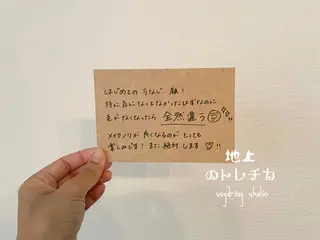 はじめての うなじ・顔！
特に気になってなかったはずなのに
毛がなくなったら 全然違う
メイクノリが 良くなるのが とっても
楽しみです！また 絶対 します
地上
のトレチカ